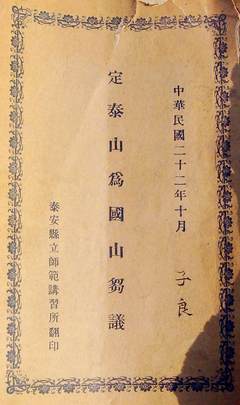 中華民國二十二年十月
子良
定泰山爲國山芻議
泰安縣立師範講習所翻印